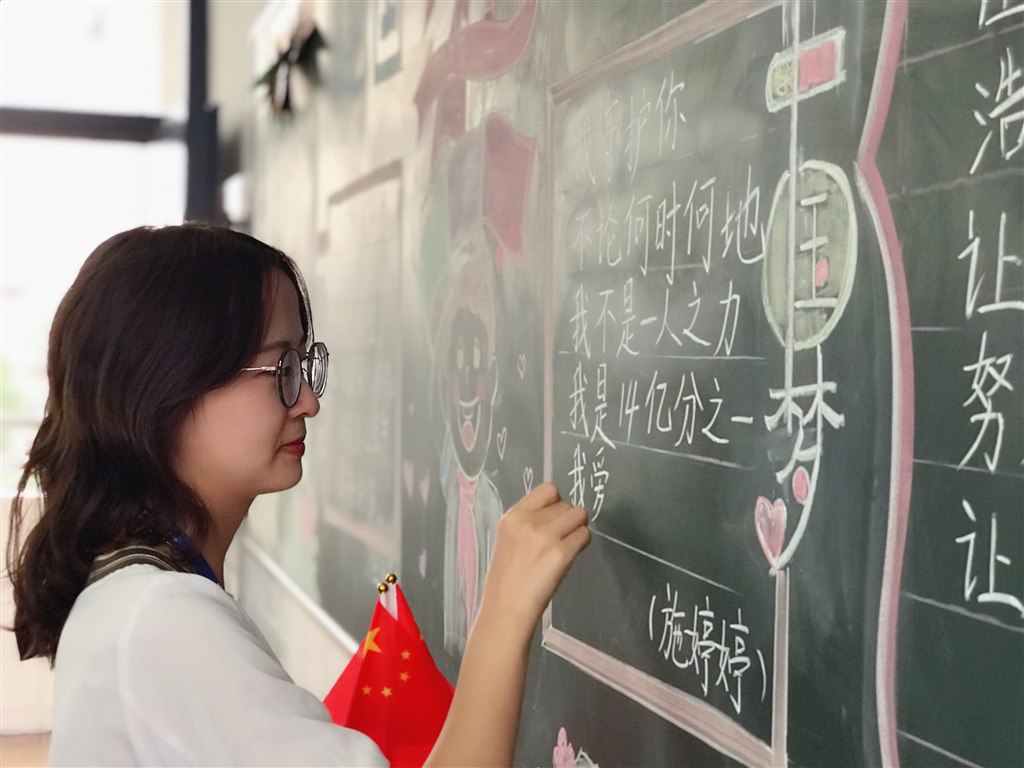 我守护你
不论何时何地
我不是一人之力
我是14亿分之一
我爱
(施婷婷)
国
梦
浩
让
努
让